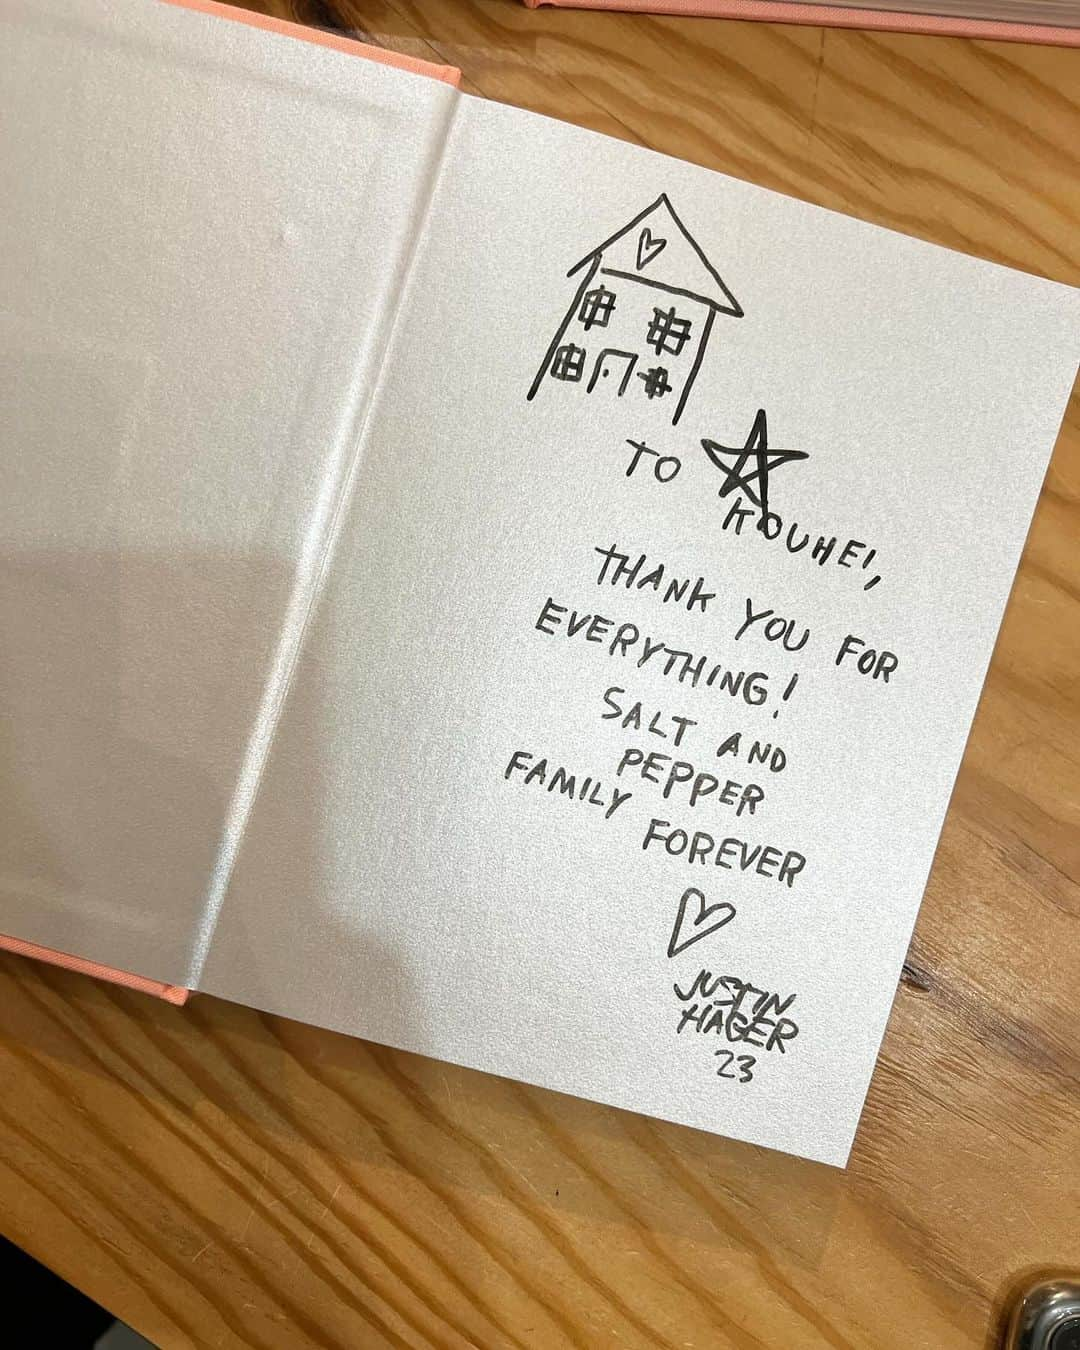 TO
KOUHEI,
THANK YOU FOR
EVERYTHING!
SALT AND
PEPPER
FAMILY FOREVER
JUSTIN
HAGER
23